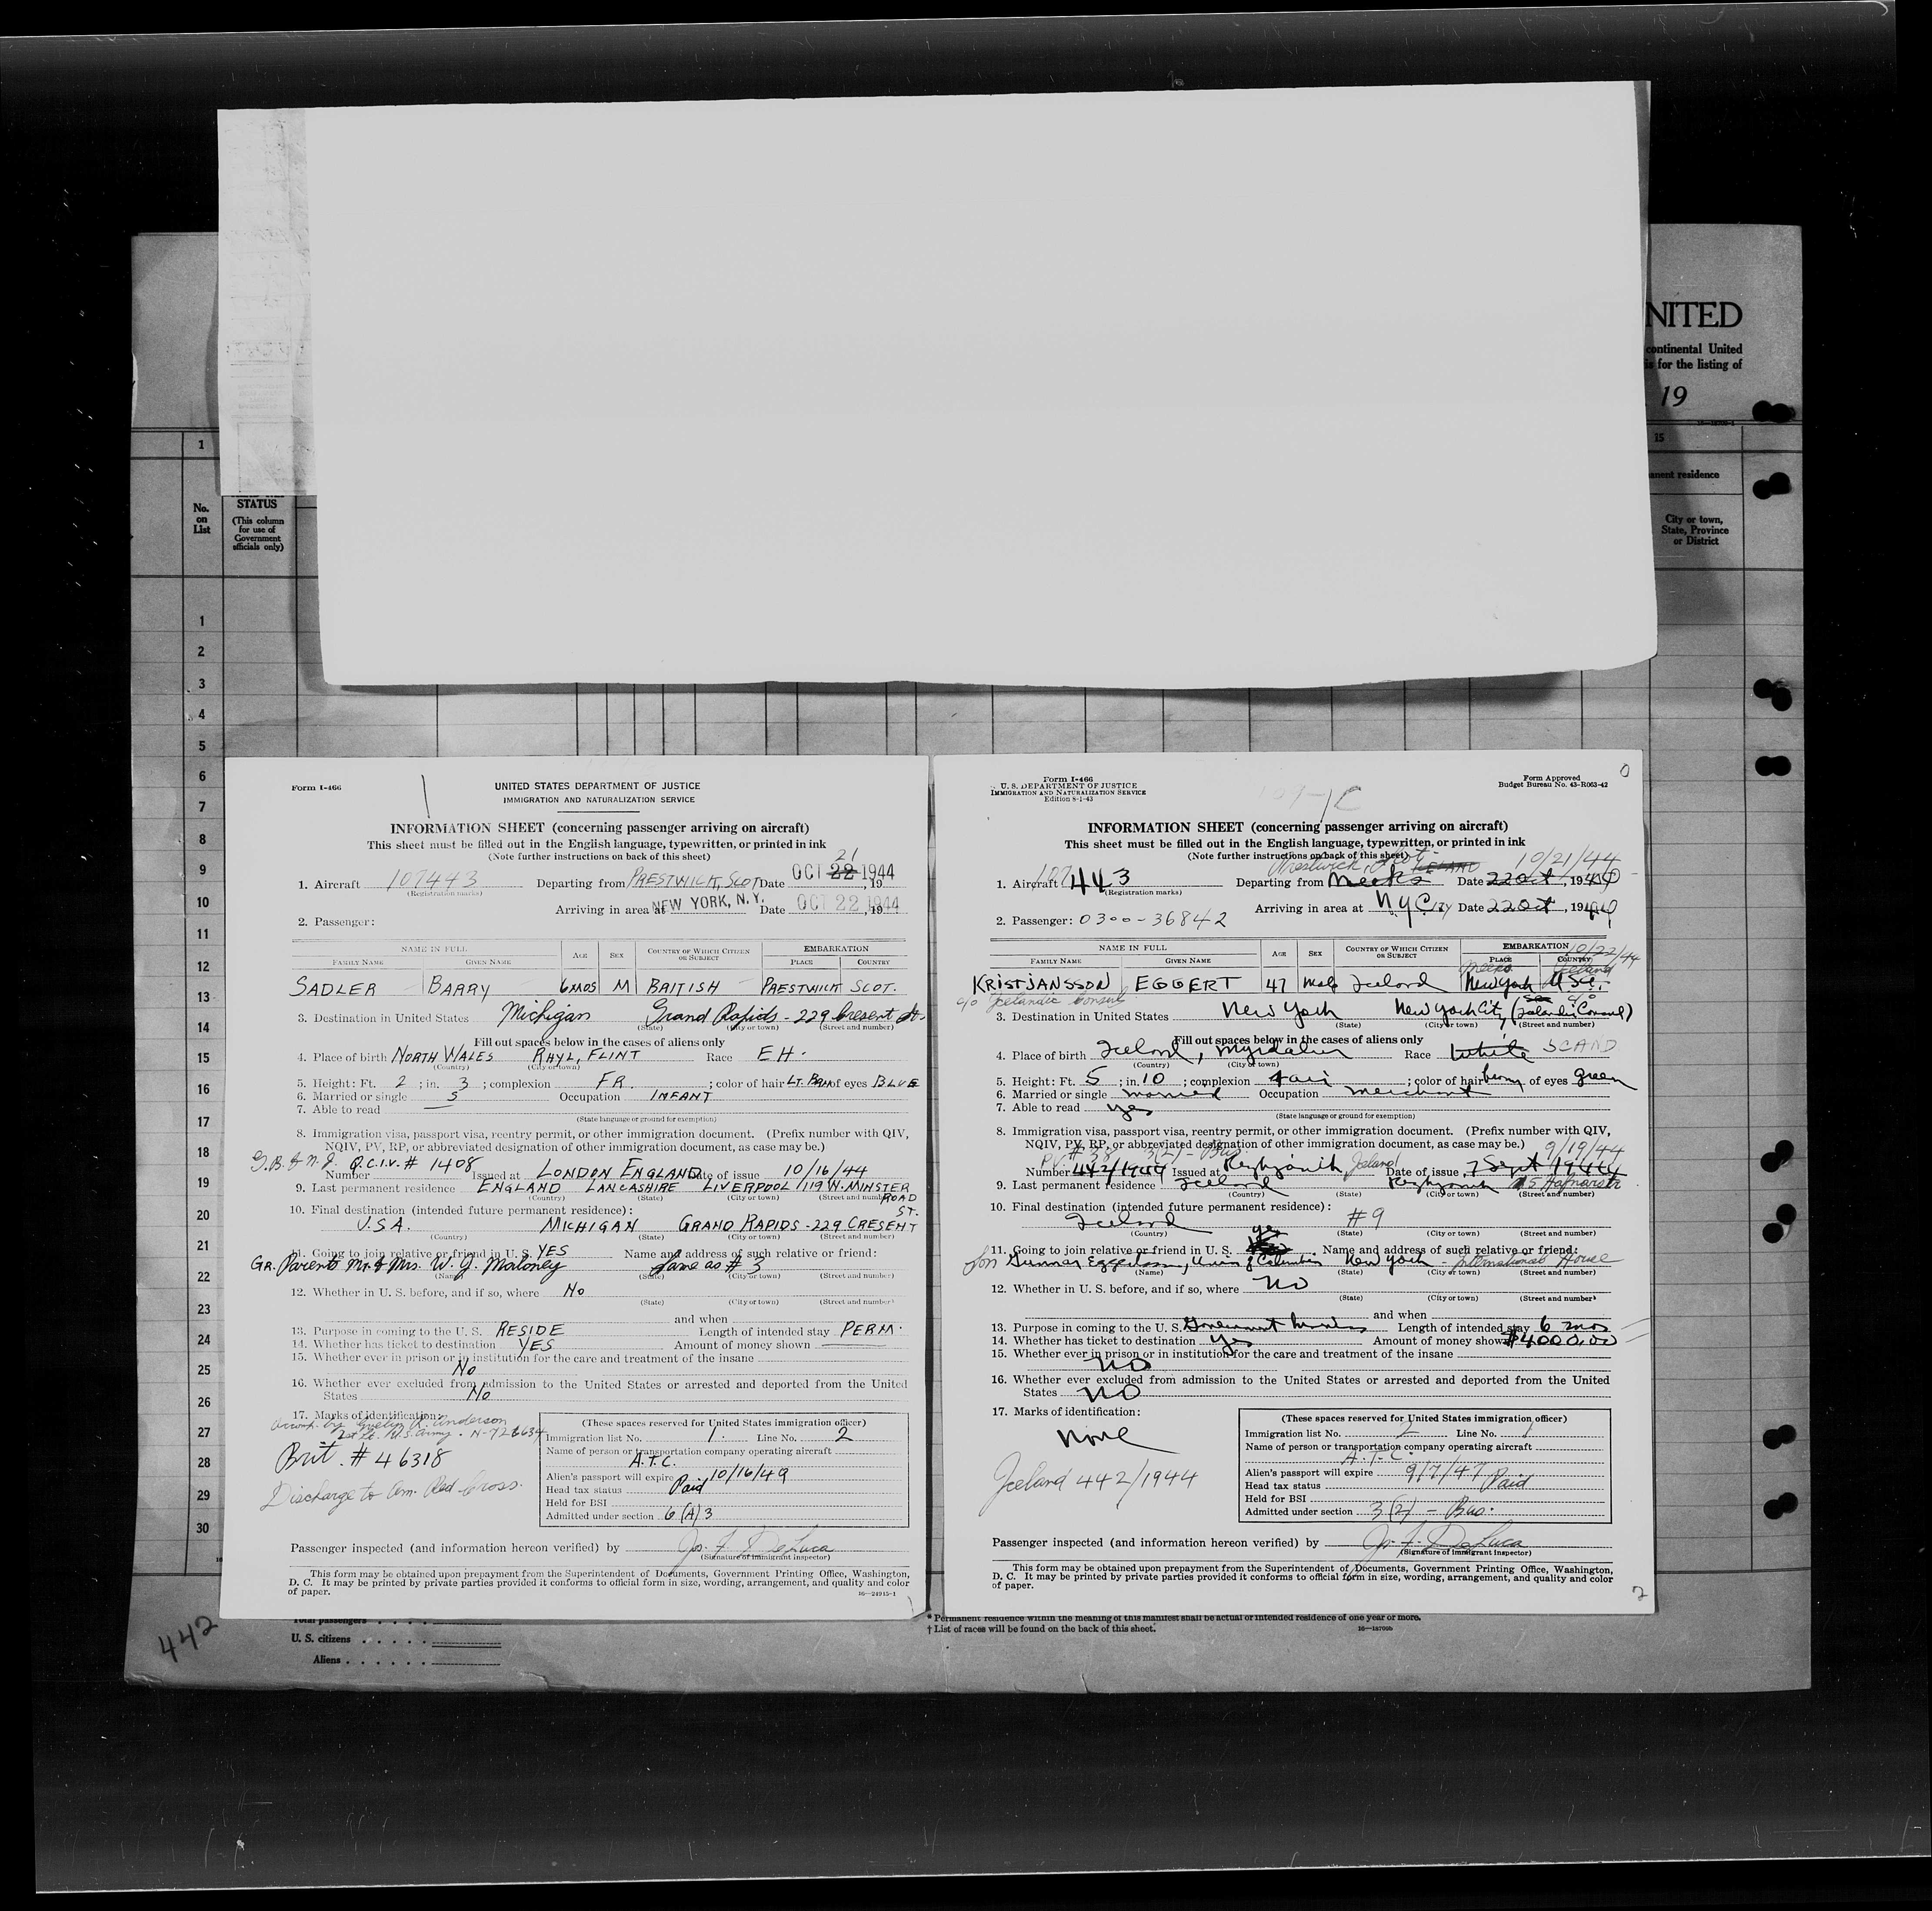 NITED
continental United
is for the listing of
19
1
15
anent residence
No.
on
List
STATUS
(This column
for use of
Government
officials only)
City or town,
State, Province
or District
1
2
3
4
5
6
7
8
9
10
11
12
13
14
15
16
17
18
19
20
21
22
23
24
25
26
27
28
29
30
Form I-466
UNITED STATES DEPARTMENT OF JUSTICE
IMMIGRATION AND NATURALIZATION SERVICE
INFORMATION SHEET (concerning passenger arriving on aircraft)
This sheet must be filled out in the English language, typewritten, or printed in ink
(Note further instructions on back of this sheet)
21
1. Aircraft 107443 Departing from PRESTWICK, SCOT Date OCT 22 1944, 19
(Registration marks)
Arriving in area at NEW YORK, N.Y. Date OCT 22 1944, 19
2. Passenger:
NAME IN FULL AGE SEX COUNTRY OF WHICH CITIZEN OR SUBJECT EMBARKATION
FAMILY NAME GIVEN NAME PLACE COUNTRY
SADLER BARRY 6 MOS M BRITISH PRESTWICK SCOT.
3. Destination in United States Michigan Grand Rapids - 229 Cresent St.
(State) (City or town) (Street and number)
Fill out spaces below in the cases of aliens only
4. Place of birth NORTH WALES RHYL, FLINT Race EH.
(Country) (City or town)
5. Height: Ft. 2 ; in. 3 ; complexion FR. ; color of hair LT. BRN of eyes BLUE
6. Married or single S Occupation INFANT
7. Able to read —
(State language or ground for exemption)
8. Immigration visa, passport visa, reentry permit, or other immigration document. (Prefix number with QIV,
NQIV, PV, RP, or abbreviated designation of other immigration document, as case may be.)
G.B. & N.I. Q.C.I.V. # 1408
Number Issued at LONDON ENGLAND Date of issue 10/16/44
9. Last permanent residence ENGLAND LANCASHIRE LIVERPOOL 119 W. MINSTER ROAD
(Country) (State) (City or town) (Street and number)
10. Final destination (intended future permanent residence): ST.
U.S.A. MICHIGAN GRAND RAPIDS - 229 CRESENT
(Country) (State) (City or town) (Street and number)
11. Going to join relative or friend in U. S. YES Name and address of such relative or friend:
GR. Parents Mr. & Mrs. W. J. Maloney Same as # 3
(Name) (State) (City or town) (Street and number)
12. Whether in U. S. before, and if so, where No
(State) (City or town) (Street and number)
and when
13. Purpose in coming to the U. S. RESIDE Length of intended stay PERM.
14. Whether has ticket to destination YES Amount of money shown —
15. Whether ever in prison or in institution for the care and treatment of the insane
No
16. Whether ever excluded from admission to the United States or arrested and deported from the United
States No
17. Marks of identification:
Accomp. by Evelyn R. Anderson
2nd Lt. U.S. Army - N-721634
Brit. # 46318
Discharge to Am. Red Cross.
(These spaces reserved for United States immigration officer)
Immigration list No. 1. Line No. 2
Name of person or transportation company operating aircraft
A.T.C.
Alien's passport will expire 10/16/49
Head tax status Paid
Held for BSI
Admitted under section 6 (A) 3
Passenger inspected (and information hereon verified) by Jos. F. DeLuca
(Signature of immigrant inspector)
This form may be obtained upon prepayment from the Superintendent of Documents, Government Printing Office, Washington,
D. C. It may be printed by private parties provided it conforms to official form in size, wording, arrangement, and quality and color
of paper.
16—24915-1
Form I-466
U. S. DEPARTMENT OF JUSTICE
IMMIGRATION AND NATURALIZATION SERVICE
Edition 8-1-43
Form Approved
Budget Bureau No. 43-R063-42
0
INFORMATION SHEET (concerning passenger arriving on aircraft)
This sheet must be filled out in the English language, typewritten, or printed in ink
(Note further instructions on back of this sheet)
Prestwick, Scot. ICELAND 10/21/44
1. Aircraft 107443 Departing from Meeks Date 22 Oct, 1944
(Registration marks)
Arriving in area at N.Y. City Date 22 Oct, 1944
2. Passenger: 0300-36842
NAME IN FULL AGE SEX COUNTRY OF WHICH CITIZEN OR SUBJECT EMBARKATION 10/22/44
FAMILY NAME GIVEN NAME PLACE COUNTRY
Meeks Iceland
KRISTJANSSON EGGERT 47 Male Iceland New York
c/o Icelandic Consul
3. Destination in United States New York New York City
(State) (City or town) (Street and number)
Fill out spaces below in the cases of aliens only
4. Place of birth Iceland, Myrdalur Race White SCAND
(Country) (City or town)
5. Height: Ft. 5 ; in. 10 ; complexion fair ; color of hair of eyes green
6. Married or single married Occupation merchant
7. Able to read yes
(State language or ground for exemption)
8. Immigration visa, passport visa, reentry permit, or other immigration document. (Prefix number with QIV,
NQIV, PV, RP, or abbreviated designation of other immigration document, as case may be.)
PV # 38 3(2) - Bus. 9/19/44
Number 442/1944 Issued at Reykjavik Iceland Date of issue 7 Sept 1944
9. Last permanent residence Iceland Reykjavik 5 Hafnarstr
(Country) (State) (City or town) (Street and number)
10. Final destination (intended future permanent residence):
Iceland # 9
(Country) (State) (City or town) (Street and number)
11. Going to join relative or friend in U. S. yes Name and address of such relative or friend:
Son Gunnar Eggertsson, Univ. of Columbia New York - International House
(Name) (State) (City or town) (Street and number)
12. Whether in U. S. before, and if so, where no
(State) (City or town) (Street and number)
and when
13. Purpose in coming to the U. S. Government business Length of intended stay 6 mos
14. Whether has ticket to destination yes Amount of money shown $4000.00
15. Whether ever in prison or in institution for the care and treatment of the insane
no
16. Whether ever excluded from admission to the United States or arrested and deported from the United
States no
17. Marks of identification:
none
Iceland 442/1944
(These spaces reserved for United States immigration officer)
Immigration list No. 2 Line No. 1
Name of person or transportation company operating aircraft
A.T.C.
Alien's passport will expire 9/7/47
Head tax status Paid
Held for BSI
Admitted under section 3 (2) - Bus.
Passenger inspected (and information hereon verified) by Jos. F. DeLuca
(Signature of immigrant inspector)
This form may be obtained upon prepayment from the Superintendent of Documents, Government Printing Office, Washington,
D. C. It may be printed by private parties provided it conforms to official form in size, wording, arrangement, and quality and color
of paper.
2
442
Total passengers
U. S. citizens
Aliens
* Permanent residence within the meaning of this manifest shall be actual or intended residence of one year or more.
† List of races will be found on the back of this sheet.
16—18709b